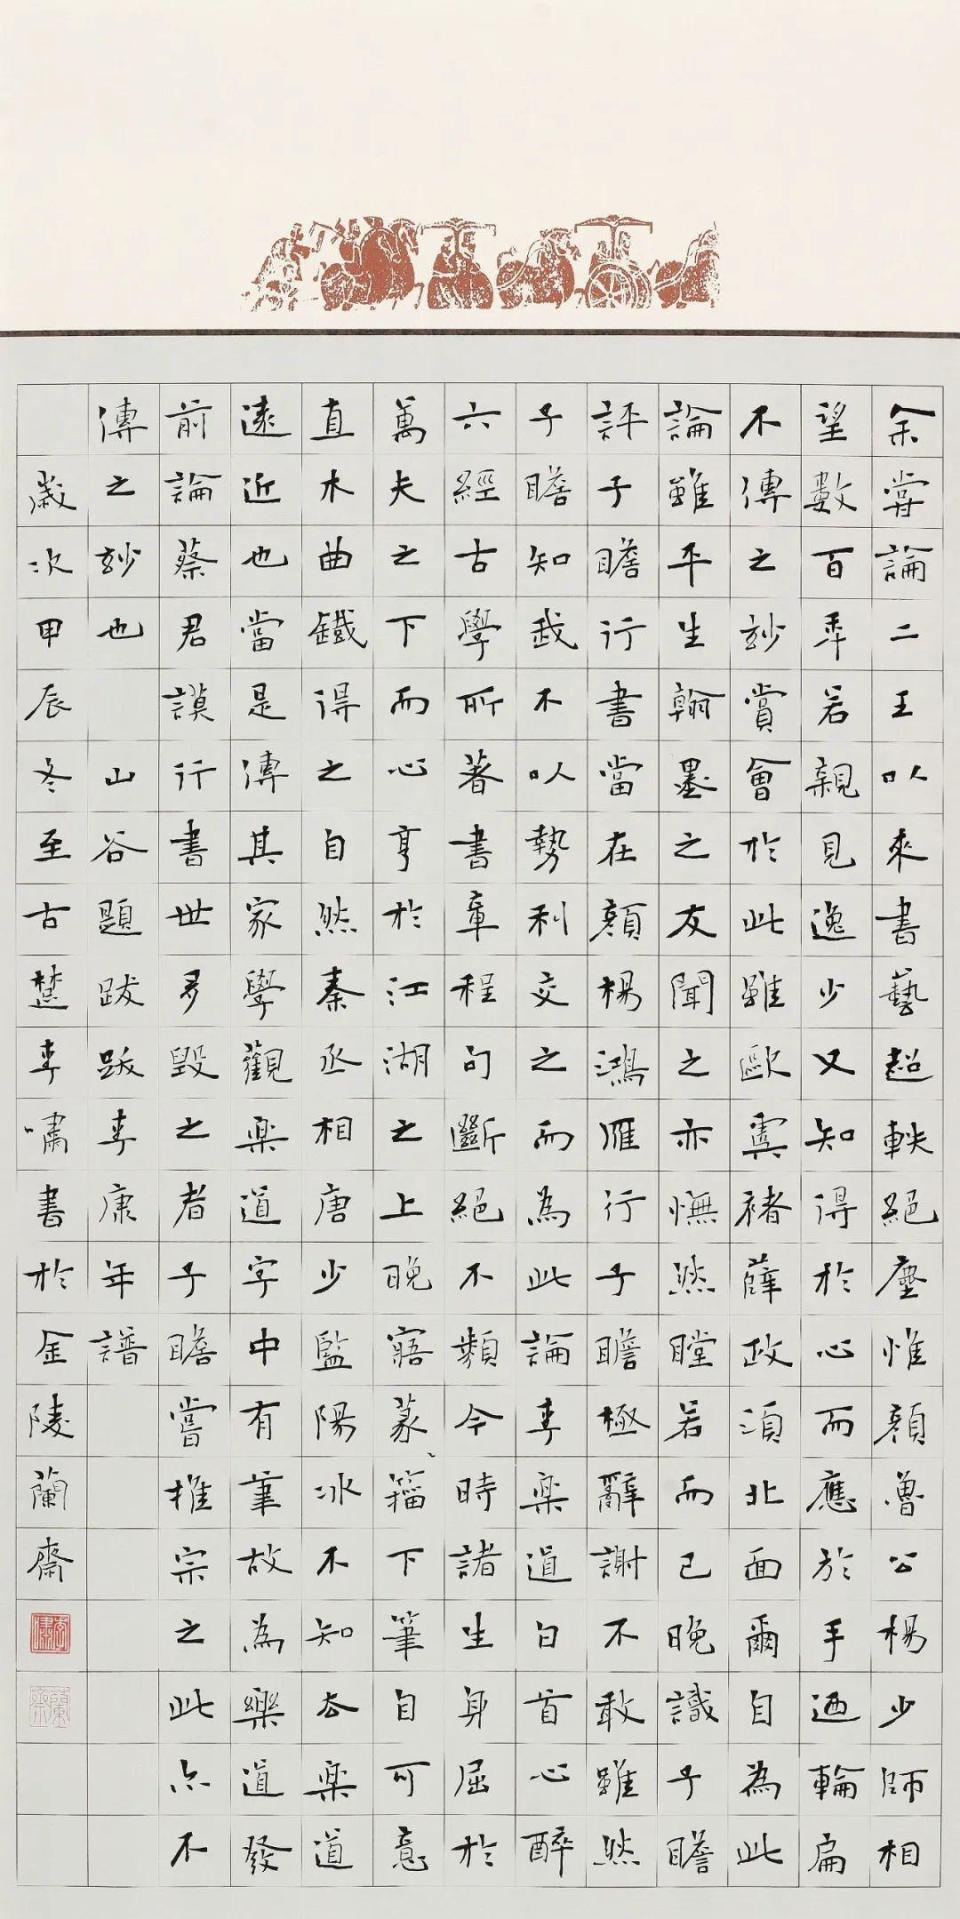 余嘗論二王以來書藝超軼絕塵惟顏魯公楊少師相
望數百年若親見逸少又知得於心而應於手乃輪扁
不傳之妙賞會於此雖歐虞褚薛政須北面爾自為此
論雖平生翰墨之友聞之亦憮然瞠若而已晚識子瞻
評子瞻行書當在顏楊鴻雁行子瞻極辭謝不敢雖然
子瞻知我不以勢利交之而為此論李樂道白首心醉
六經古學所著書章程句斷絕不類今時諸生身屈於
萬夫之下而心亨於江湖之上晚寤篆籀下筆自可意
直木曲鐵得之自然秦丞相唐少監陽冰不知去樂道
遠近也當是傳其家學觀樂道字中有筆故為樂道發
前論蔡君謨行書世多毀之者子瞻嘗推宗之此亦不
傳之妙也 山谷題跋跋李康年譜
歲次甲辰冬至古楚李嘯書於金陵蘭齋